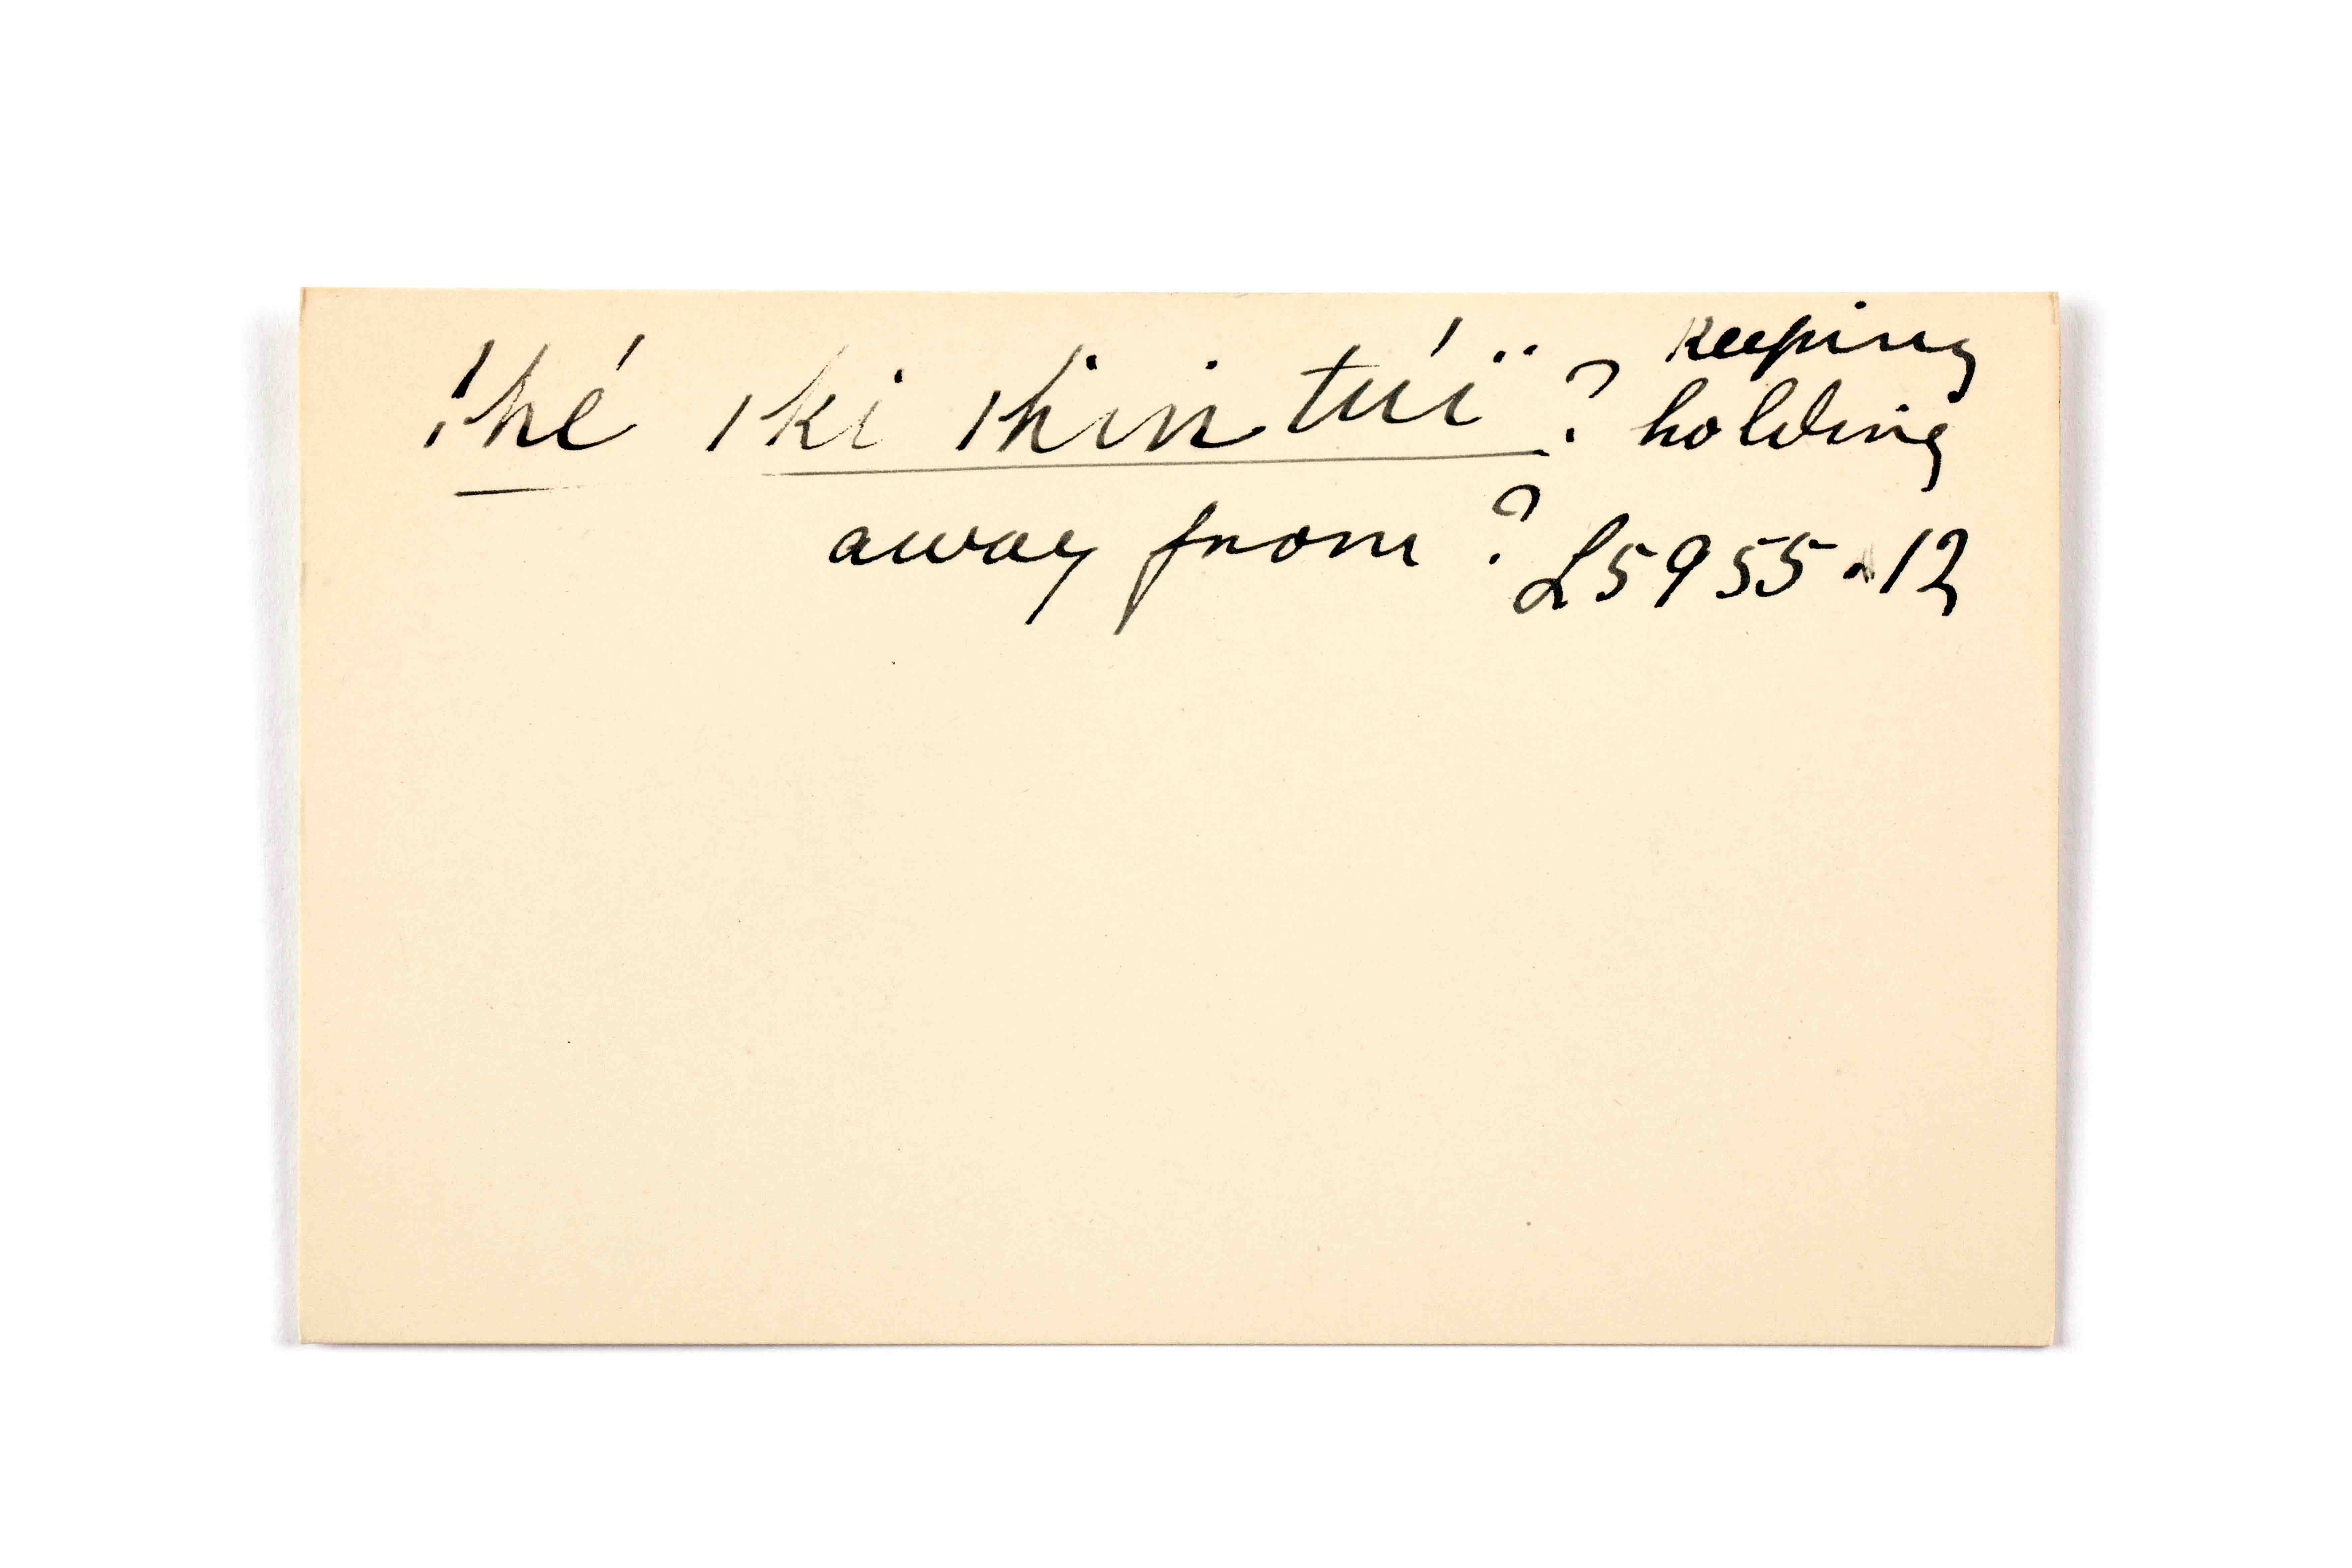 keeping
!hé |ki |hin túï ? holding
away from ? L5955.12